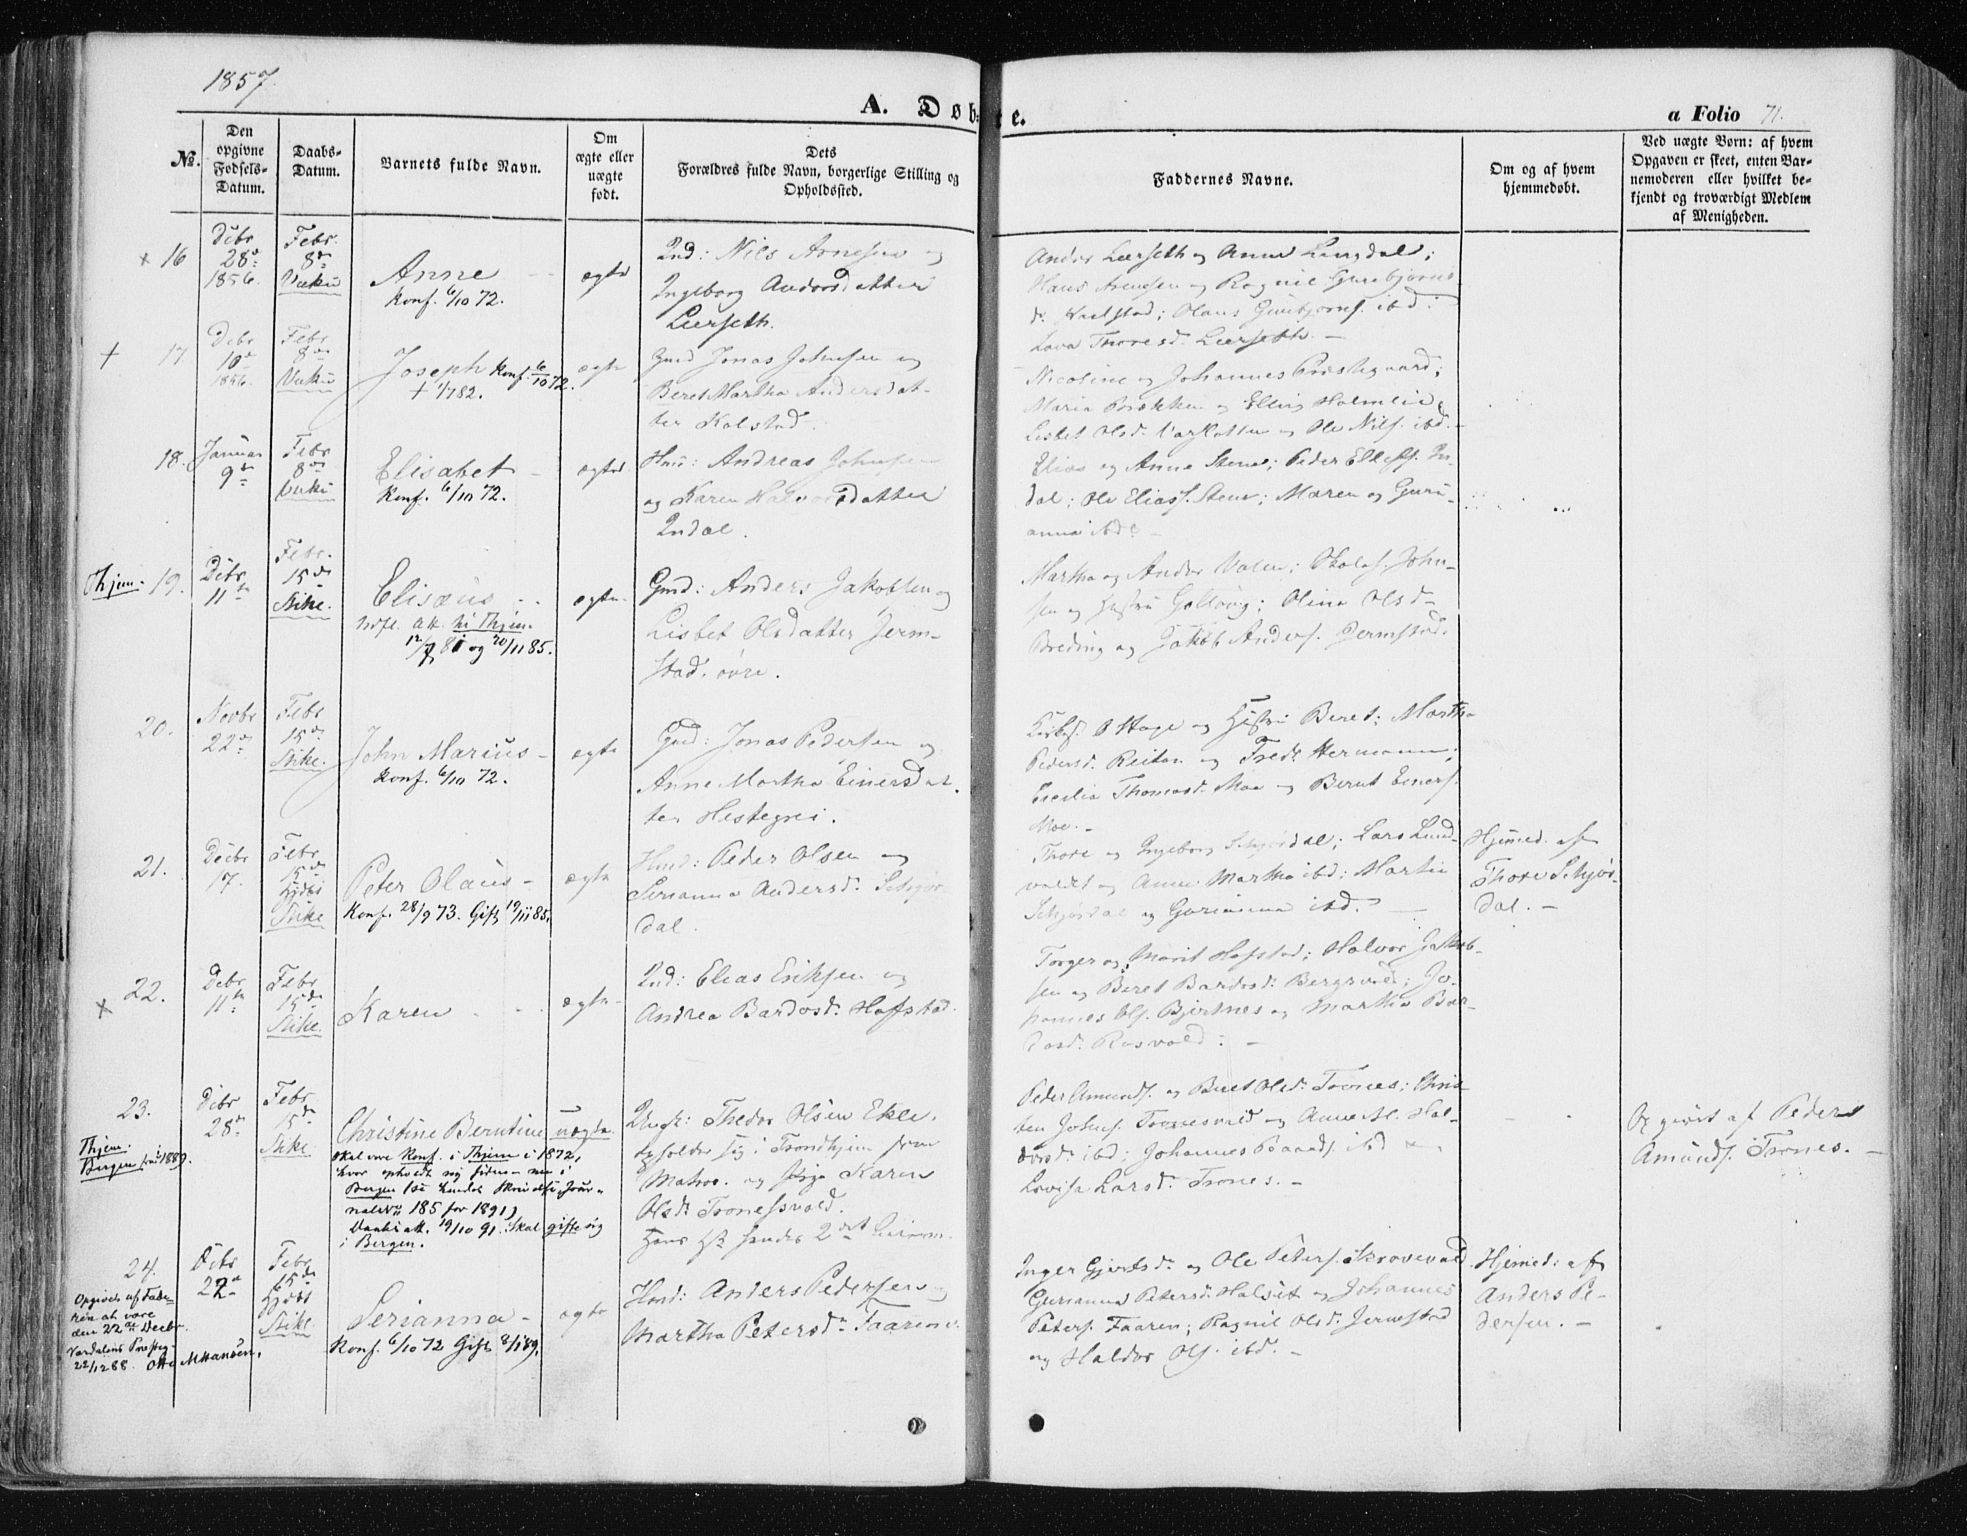 1857.
A. Døbte.
a Folio 71.
No.
Den opgivne Fødsels-Datum.
Daabs-Datum.
Barnets fulde Navn.
Om ægte eller uægte født.
Dets Forældres fulde Navn, borgerlige Stilling og Opholdssted.
Faddernes Navne.
Om og af hvem hjemmedøbt.
Ved uægte Børn: af hvem Opgaven er skeet, enten Barnemoderen eller hvilket bekjendt og troværdigt Medlem af Menigheden.
+ 16
Debr
28de
1856.
Febr.
8de
Vuku
Anne
Konf. 6/10 72.
ægte
Ind: Nils Arnesen og
Ingeborg Andersdatter
Leerseth.
Ander Leerseth og Anne Lengdal;
Hans Arnesen og Ragnil Gunbjørns
d. Karlstad; Olaus Gunbjørns. ibd:
Lava Thoresd. Leerseth. –
+ 17.
Debr
10de
1856.
Febr
8de
Vuku
Joseph Konf. 6/10 72.
+ 1/7 82.
ægte
Gmd Jonas Johnsen og
Beret Martha Andersdat-
ter Kolstad.
Nicoline og Johannes Præstegaard;
Maria Brækken og Ellev Holmlie;
Lisbet Olsd. og Ole Nils. ibd. –
18.
Januar
9de
Febr
8de
Vuku
Elisabet –
Konf. 6/10 72.
ægte
Hmd: Andreas Johnsen
og Karen Halvorsdatter
Indal.
Elias og Anne Stene; Peder Ellefs. In-
dal; Ole Elias. Stene; Maren og Guru-
anna ibd. –
Thjem. 19.
Debr
11te
Febr.
15de
Stike.
Elisæus
Udfl. Att. til Thjem.
12/7 81 og 20/11 85.
ægte
Gmd: Anders Jakobsen og
Lisbet Olsdatter Jerm-
stad, øvre.
Martha og Ander Valen; Olaf. John-
sen og Hustru Golløug; Olina Olsd.
Breding og Jakob Anders. Jermstad.
20.
Novbr
22de
Febr
15de
Stike.
John Marius –
Konf. 6/10 72.
ægte
Gmd: Jonas Pedersen og
Anne Martha Einersdat-
ter Hestegrei.
Hage og Hustru Beret; Martha
Pedersd. Reitan og Fredr. Hermann;
Cecilia Thomasd. Moe og Bernt Einers.
Moe. –
21.
Decbr
17.
Febr
15de
Hjdøbt
Stike
Peter Olaus –
Konf. 28/9 73. Gift 19/11 85.
ægte
Hmd: Peder Olsen og
Serianna Andersd. Schjør-
dal.
Thore og Ingeborg Schjørdal; Lars Lund-
valdet og Anne Martha ibd; Martin
Schjørdal og Gurianna ibd. –
Hjemed. af
Thore Schjør-
dal. –
+ 22.
Debr
11te
Febr
15de
Stike.
Karen
ægte
Ind: Elias Eriksen og
Andrea Bardosd. Hofstad.
Torger og Marit Hofstad; Halvor Jakob-
sen og Beret Bardosd. Bergsvald; Jo-
hannes Ols. Bjertnes og Martha Bar-
dosd. Rosvold. –
23.
Thjem.
Bergen fra 1889.
Debr
28de
Febr
15de
Stike.
Christine Berntine
skal være Konf. i Thjem i 1872,
hvor opholdt sig siden – nu i
Bergen (se hendes Skrivelse, Jour-
nalsv. 185 for 1891)
Daabsatt. 19/10 91. Skal gifte sig
i Bergen.
uægte
Ungk: Thedor Olsen Ekle,
opholder sig i Trondhjem som
Matros og Pige Karen
Olsd. Tronesvold.
Hans 1ste hendes 2det Leierm.
Peder Amunds. og Beret Olsd. Trones; Chris-
ten Johns. Tronesvald og Anne M. Hal-
dorsd. ibd; Johannes Baards. ibd
Lovisa Larsd. Trones. –
Opgivet af Peder
Amunds. Trones. –
24.
Opgivet af Fade-
ren at være
den 22de Decbr.
Værdalens Præsteg.
22/12 88. Otto M Hansen.
Debr
22de
Febr
15de
Hjdøbt
Stike.
Serianna –
Konf. 6/10 72 Gift 8/11 89.
ægte
Hmd: Anders Pedersen og
Martha Petersd. Faaren.
Inger Gjertsd. og Ole Peters. Skrovevald
Gurianna Petersd. Halset og Johannes
Peters. Faaren; Ragnil Olsd. Jermstad
og Haldor Ols. ibd. –
Hjemed: af
Anders Pe-
dersen. –